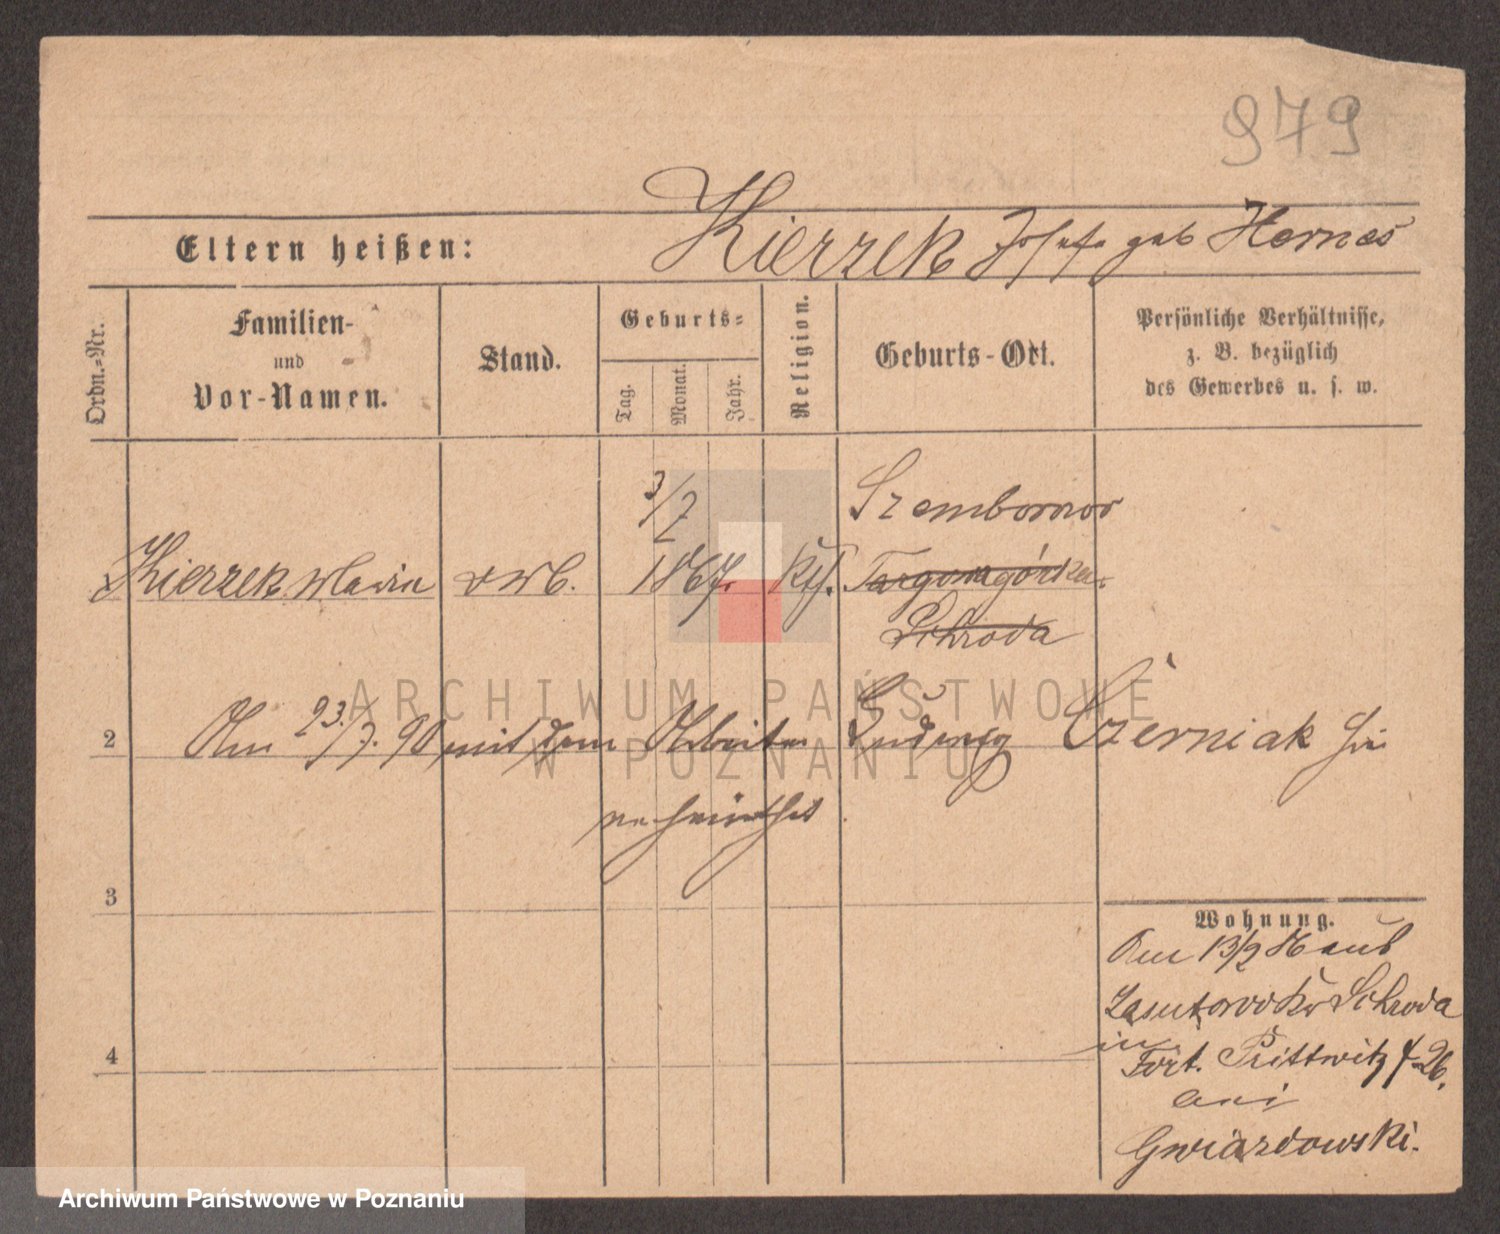 979
Eltern heißen: Kierzek Josefa geb Hernes
Ordn.-Nr.
Familien-
und
Vor-Namen.
Stand.
Geburts-
Tag.
Monat.
Jahr.
Religion.
Geburts-Ort.
Persönliche Verhältnisse,
z. B. bezüglich
des Gewerbes u. s. w.
3/7
Szemborowo
Kierzek Maria 1867. Kth. Targowagórka
Schroda
2 Am 23./7. 90 mit dem Arbeiter Ludwig Czerniak hier
verheirathet
3
Wohnung.
Am 13/9 86 aus
Zasutowo Kr Schroda
in
Fort. Prittwitz 7-26.
bei
Gwiazdowski.
4
ARCHIWUM PAŃSTWOWE
W POZNANIU
Archiwum Państwowe w Poznaniu